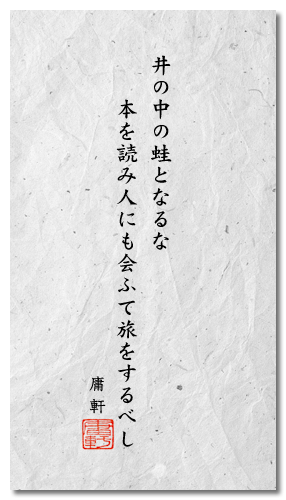 井の中の蛙となるな
本を読み人にも会ふて旅をするべし
庸軒
庸軒